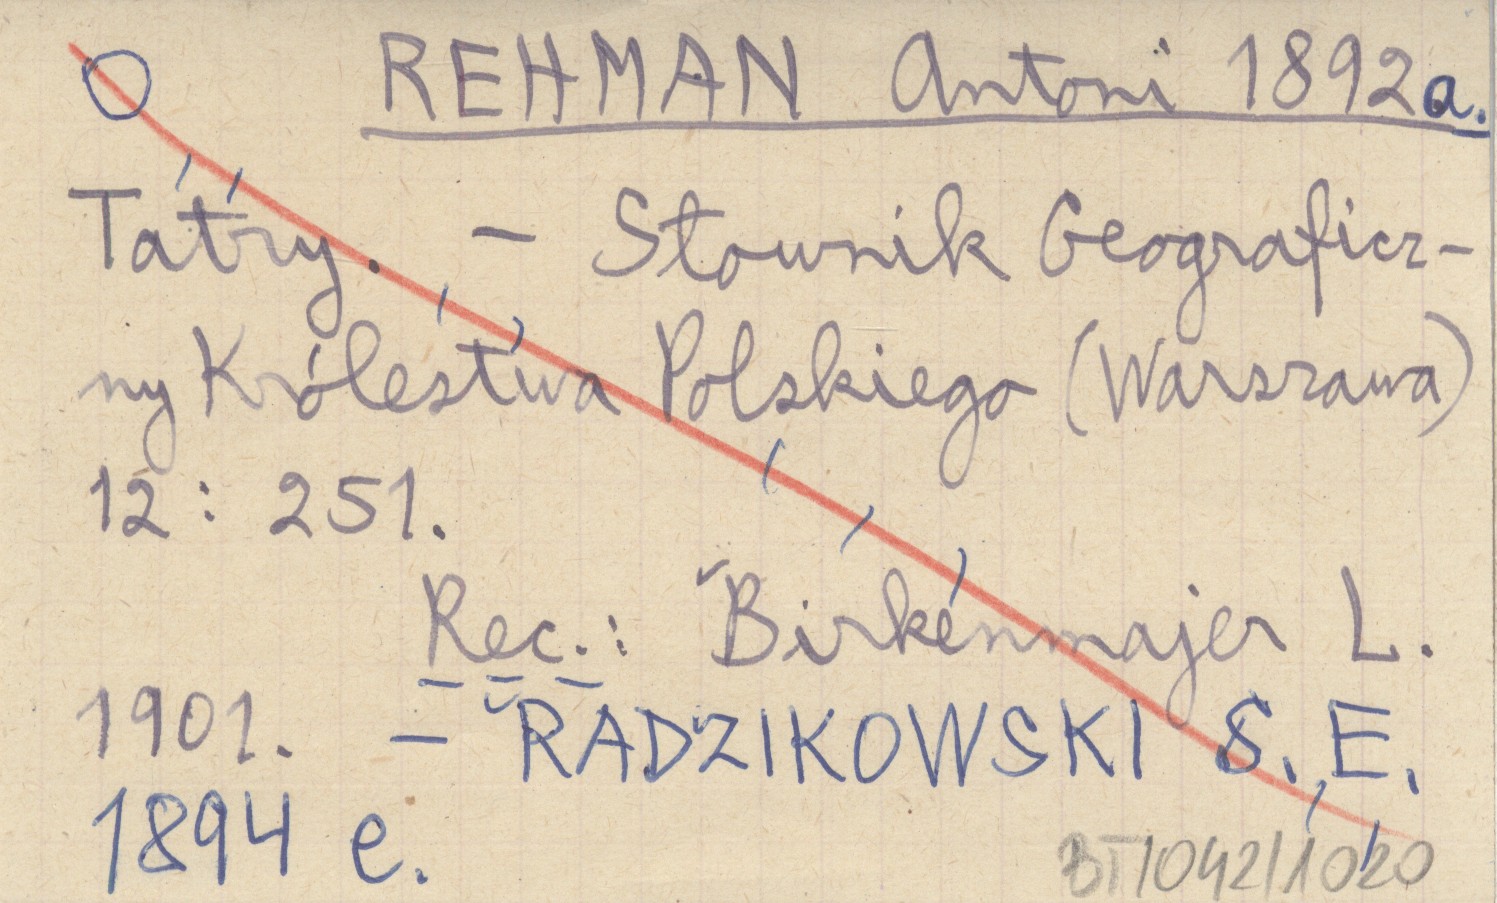 REHMAN Antoni 1892a.
Tatry. - Słownik Geograficz-
ny Królestwa Polskiego (Warszawa)
12: 251.
Rec.: Birkenmajer L.
1901. - RADZIKOWSKI S. E.
1894 e.
BT/1042/1020